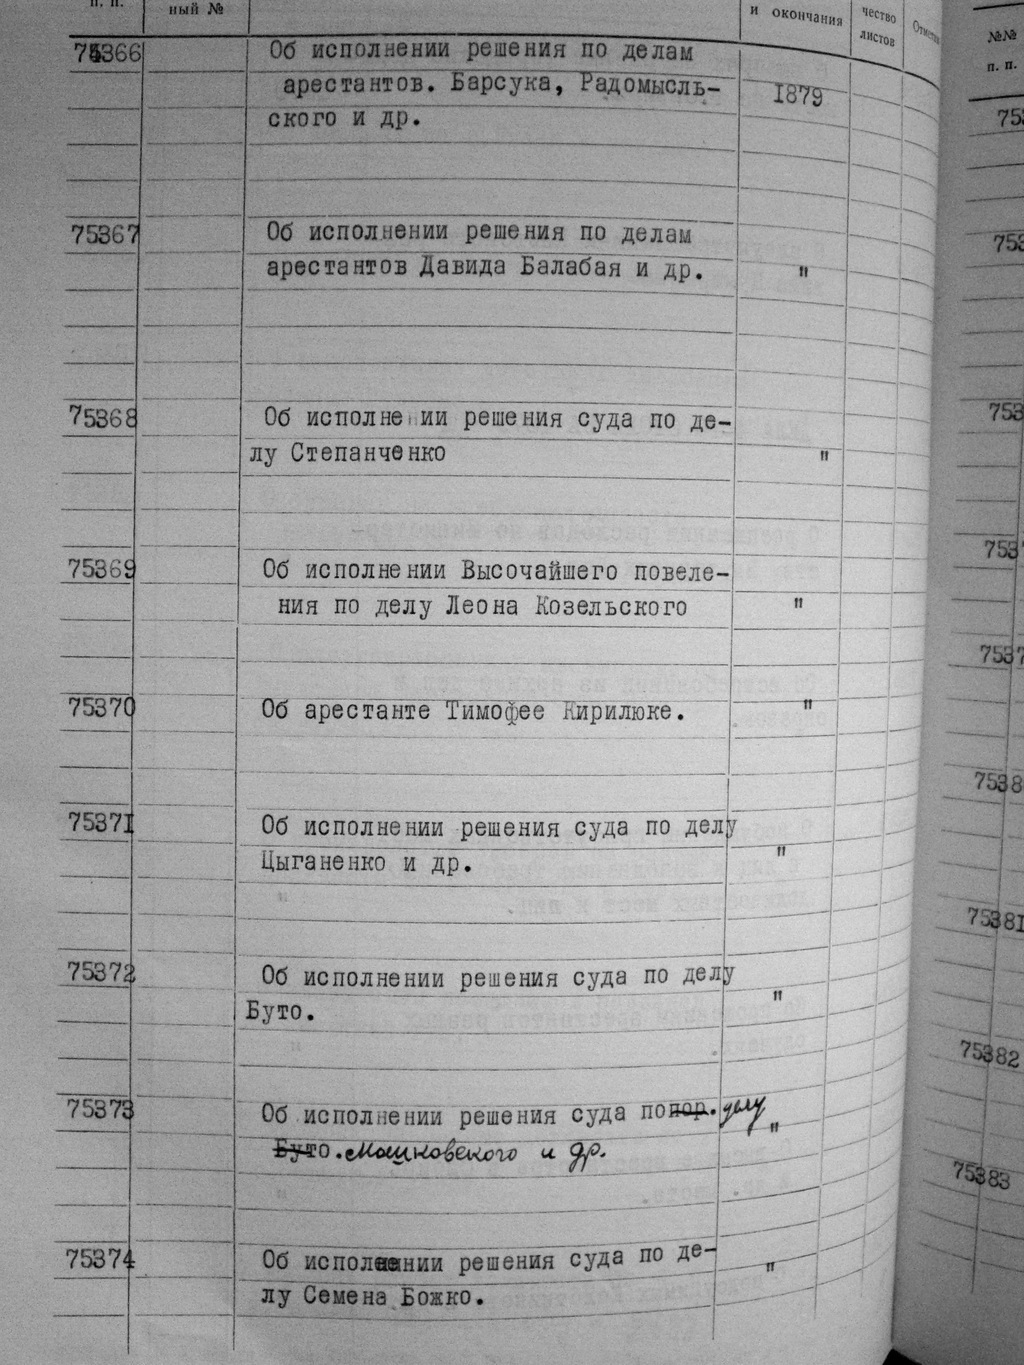 п. п. ный № и окончания чество листов
75366 Об исполнении решения по делам
арестантов. Барсука, Радомысль- 1879
ского и др.
75367 Об исполнении решения по делам
арестантов Давида Балабая и др. "
75368 Об исполнении решения суда по де-
лу Степанченко "
75369 Об исполнении Высочайшего повеле-
ния по делу Леона Козельского "
75370 Об арестанте Тимофее Кирилюке. "
75371 Об исполнении решения суда по делу
Цыганенко и др. "
75372 Об исполнении решения суда по делу
Буто. "
75373 Об исполнении решения суда по делу "
Мошковского и др.
75374 Об исполнении решения суда по де-
лу Семена Божко. "
№№
п. п.
75381
75382
75383